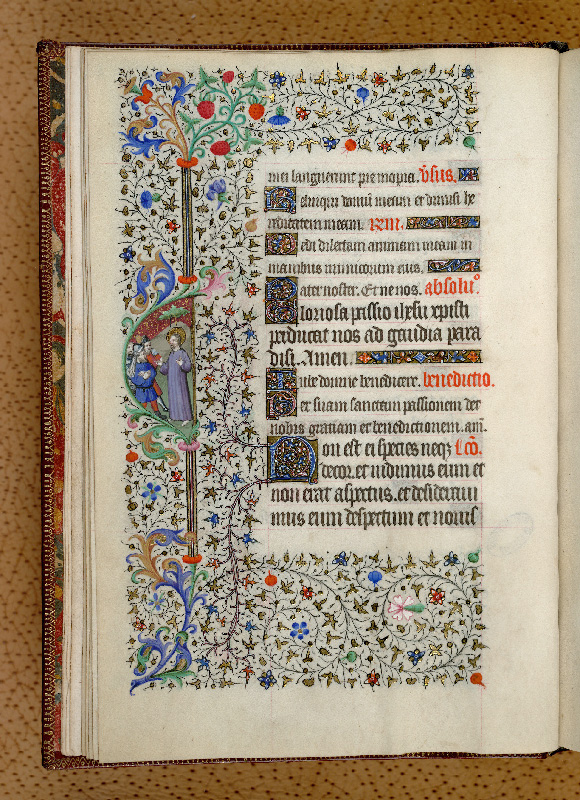 mei languerunt pre inopia. Vsus.
Reliqui domū meam et dimisi he
reditatem meam.
Dedi dilectam animam meam in
manibus inimicorum eius.
Pater noster. Et ne nos. absolu°
Gloriosa passio ihesu xpisti
perducat nos ad gaudia para
disi. Amen.
Iube domne benedicere. benedictio.
Per suam sanctam passionem det
nobis gratiam et benedictionem. am̄.
Non est ei species neqz lc̄o.
decor. et uidimus eum et
non erat aspectus. et desideraui
mus eum despectum et nouis